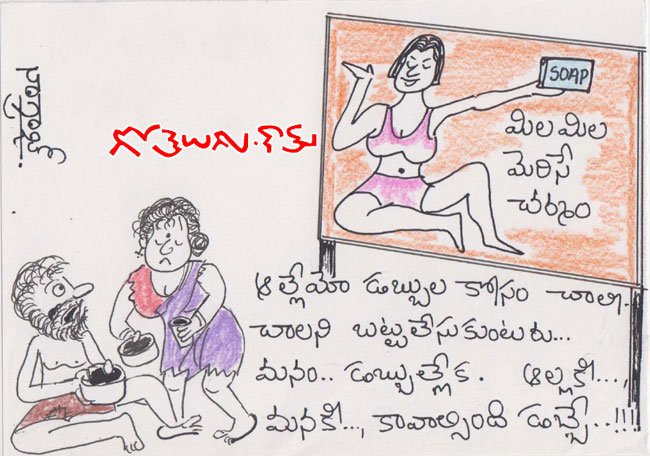 SOAP
మిలమిల
మెరిసే
చర్మం
గోతెలుగు.కామ్
ఆల్లేమో డబ్బుల కోసం చాలీ..
చాలని బట్టలేసుకుంటరు...
మనం.. డబ్బుల్లేక. ఆల్లకీ...,
మనకీ..., కావాల్సింది డబ్బే..!!!